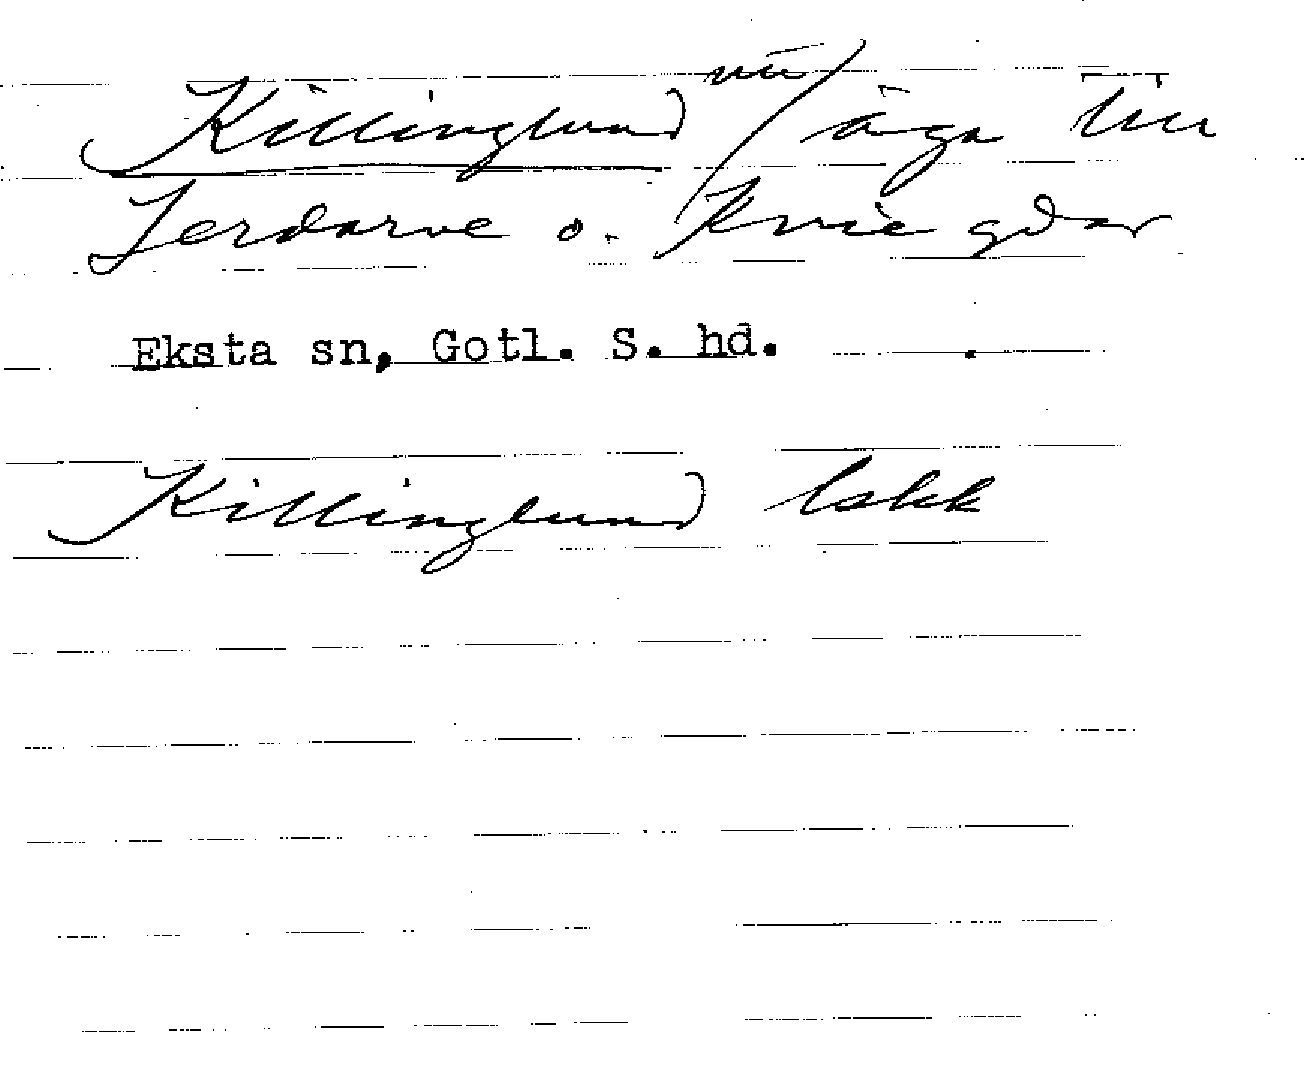 Killinglund äga till
Jerdarve o. Kvie gdar
Eksta sn, Gotl. S. hd.
Killinglund lskk